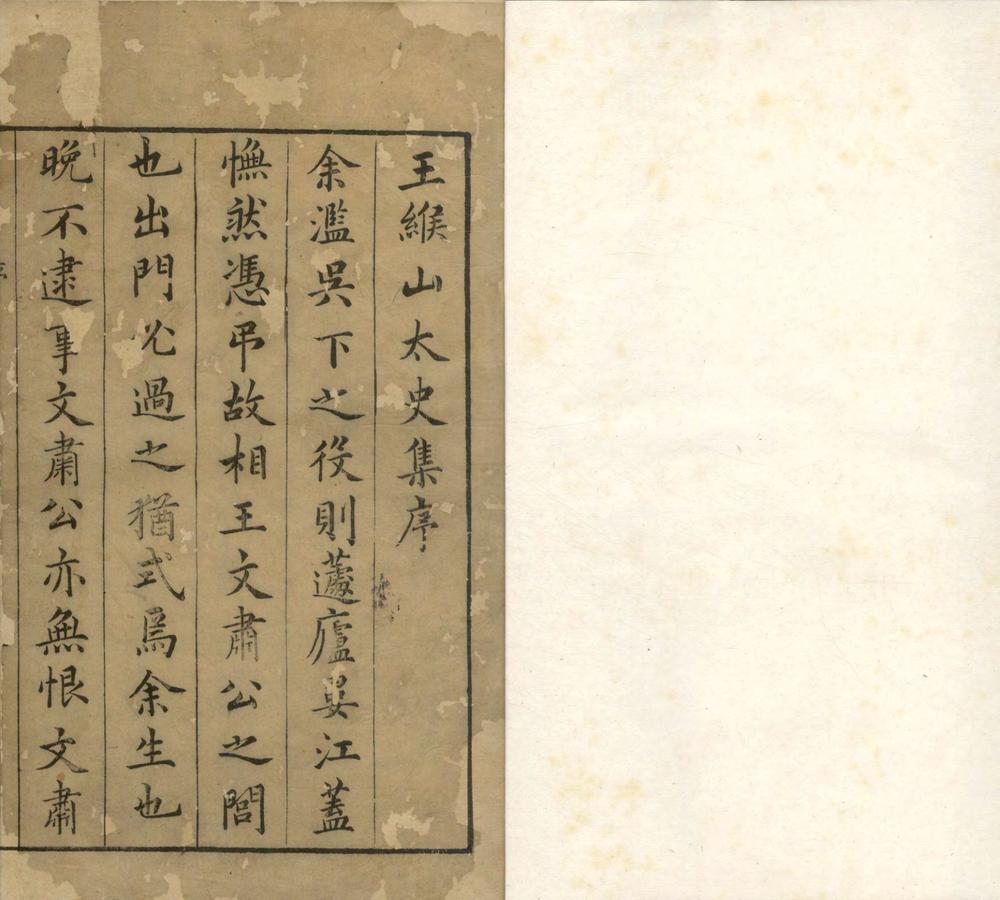 王緱山太史集序
余濫吳下之役則蘧廬婁江蓋
憮然憑弔故相王文肅公之閭
也出門必過之猶式焉余生也
晚不逮事文肅公亦無恨文肅